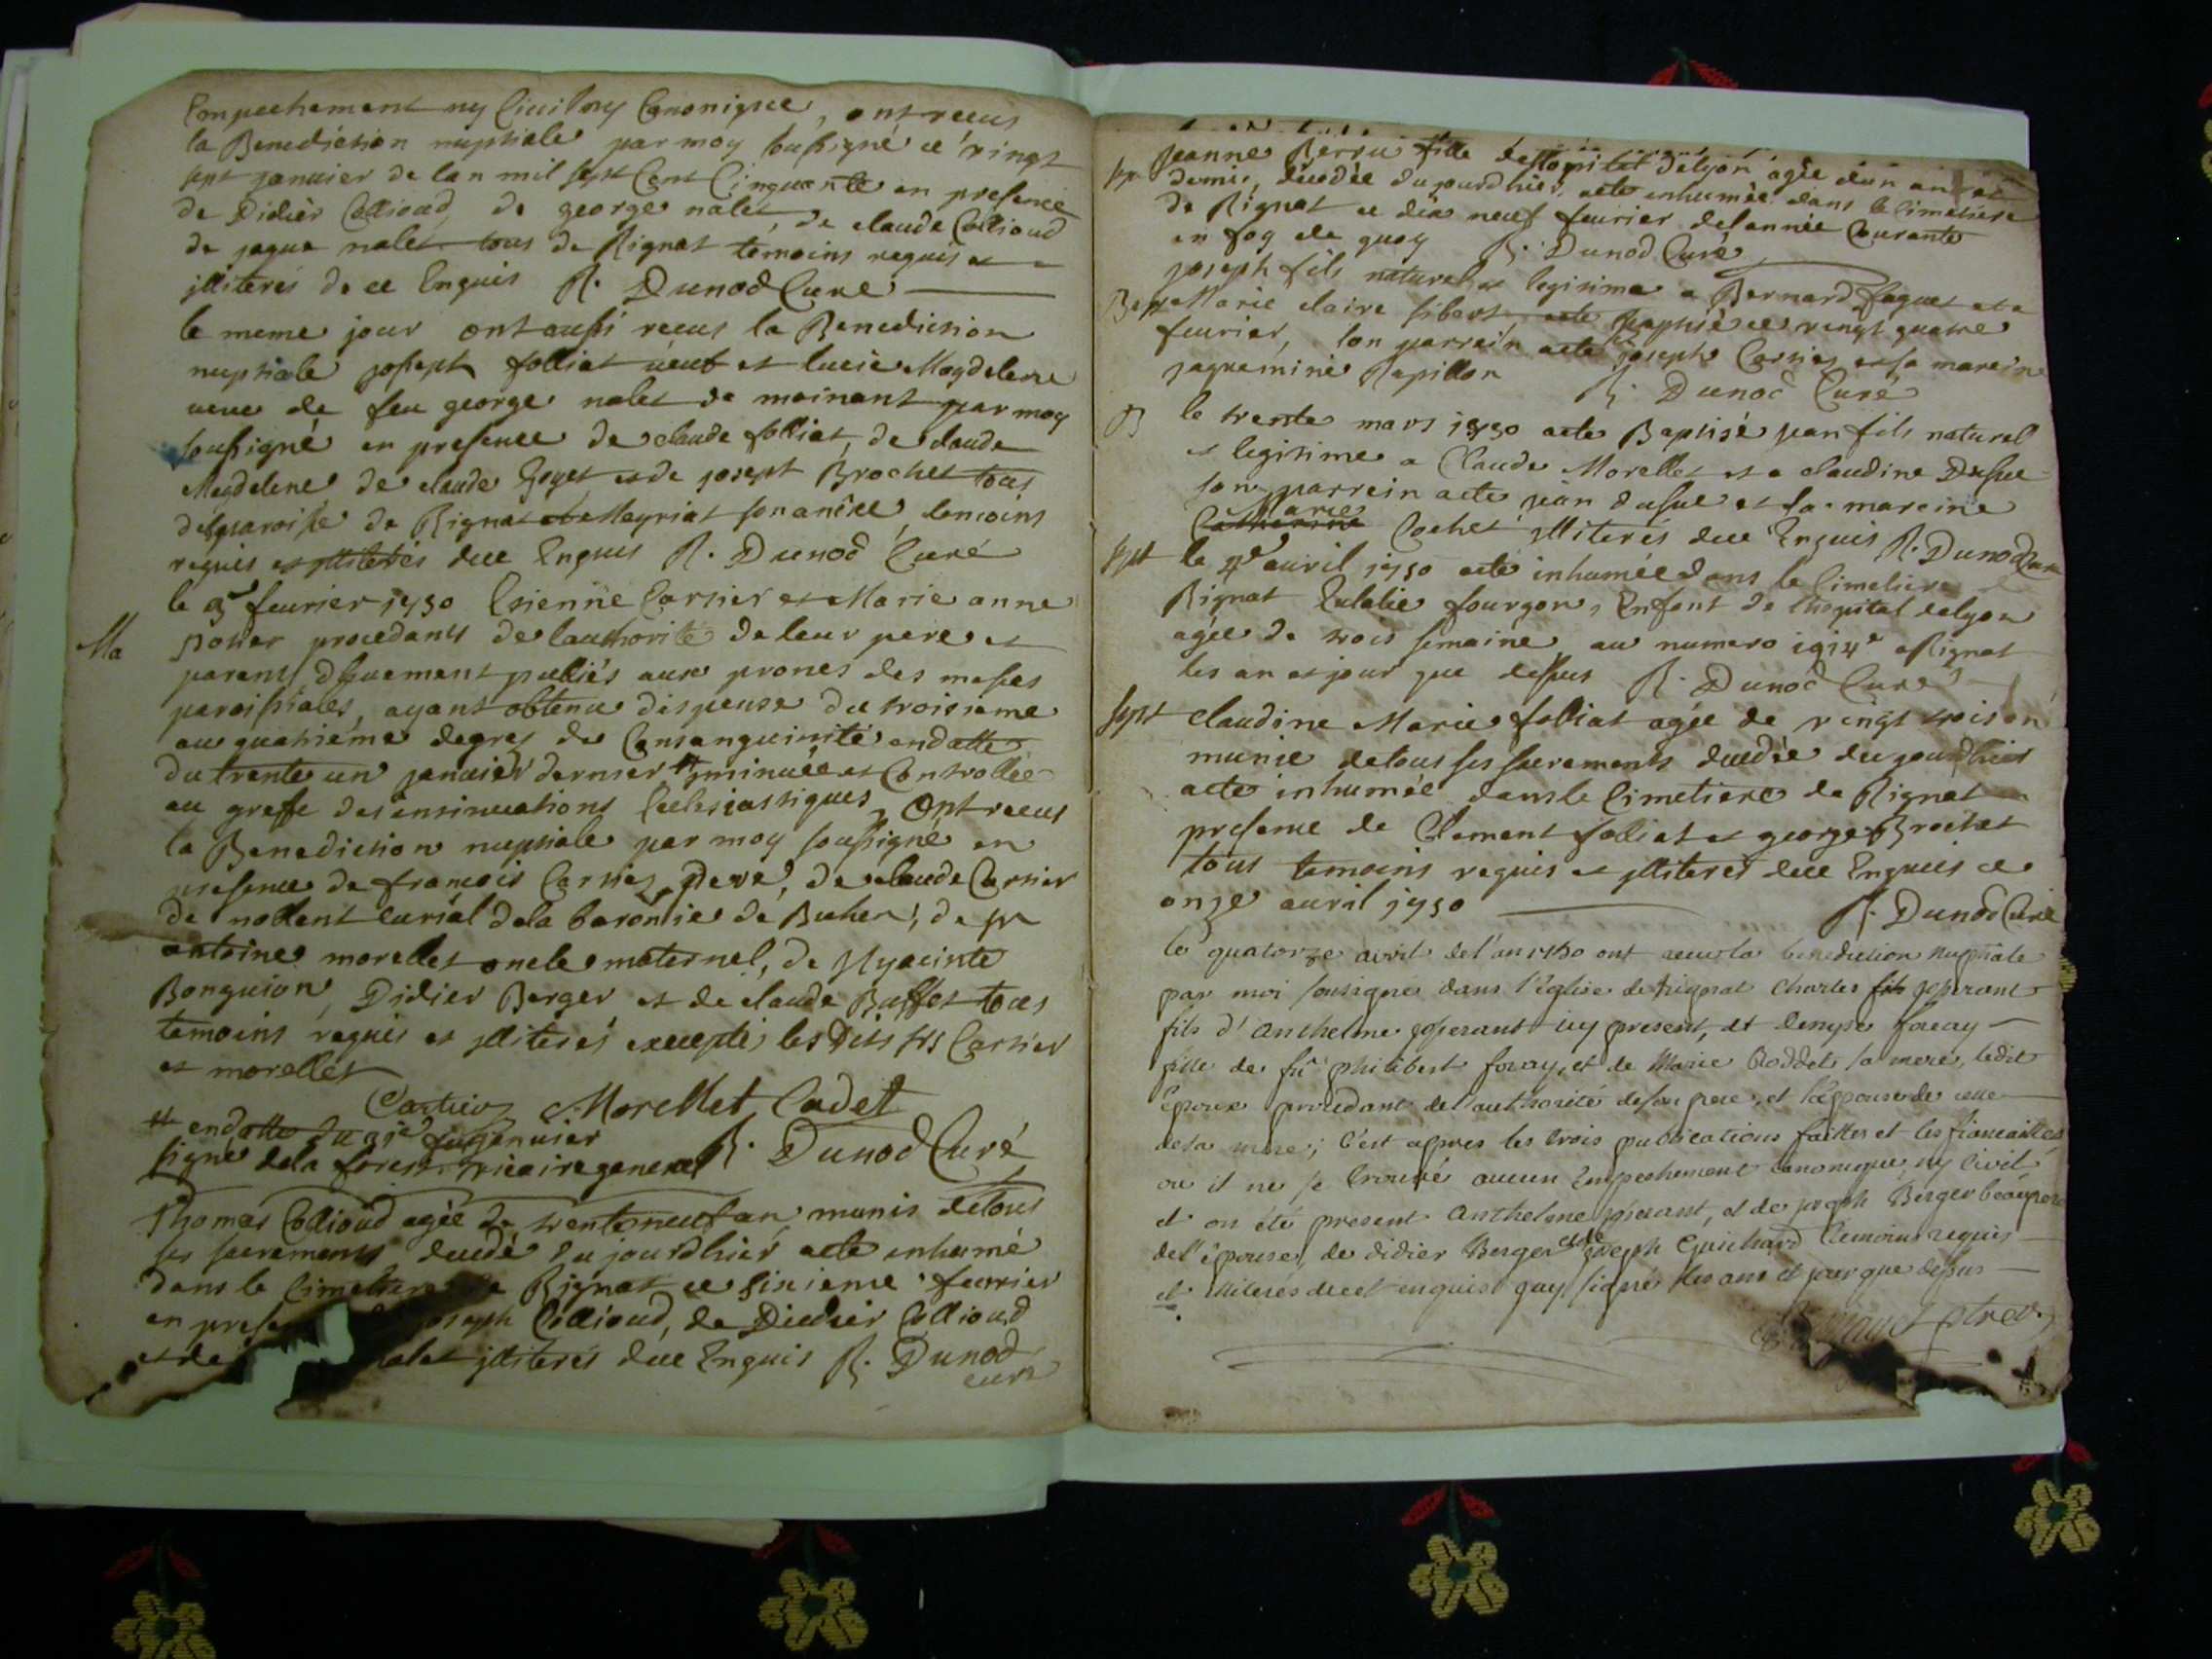 Empechement ny Civil ny Canonique, ont receus
la Benediction nuptiale par moy soussigné ce vingt
sept janvier de lan mil sept Cent Cinquante en presence
de Didier Collioud, de george nalet, de claude Collioud
de jaque nalet tous de Rignat temoins requis et
illiterés de ce Enquis R. Dunod Curé
le meme jour ont aussi receus la Benediction
nuptiale joseph folliat veuf et lucie Magdelene
veuve de feu george nalet de moinant par moy
soussigné en presence de claude folliat, de claude
Magdelene de claude Goyet et de josept Brochet tous
des paroisse de Rignat et Meyriat son anexe, temoins
requis et illiterés dece Enquis R. Dunod Curé
le 3e fevrier 1750 Estienne Cartier et Marie anne
Ma
potier procedants de lauthorité de leur pere et
parents, dhuement publiés aux prones des messes
paroissiales, ayant obtenu dispense du troisieme
au quatrieme degres de Consanguinité endatte
du trente un janvier dernier # insinuée et Controllée
au greffe des insinuations Eclesiastiques, Ont receus
la Benediction nuptiale par moy soussigné en
presence de francois Cartier, pere, de claude Cartier
de nollant curial dela baronnie de Buhen, de sr
antoine morellet oncle maternel, de Hyacinte
Bonguion, Didier Berger et de claude Buffet tous
temoins requis et illiterés exceptés les dits srs Cartier
et morellet
Cartier C. Morellet Cadet
# endatte du 31e janvier
signé dela forest vicaire general R. Dunod Curé
Thomas Collioud agée de trente neuf an, munis detous
ses sacrements decedé du jourdhier acte inhumé
dans le Cimetiere de Rignat ce sixieme fevrier
en prese joseph Collioud, de Diedier Collioud
et de nalet illiterés dece Enquis R. Dunod
curé
Jeanne Perru fille deslopital delyon agée dun an et
sep demie, decedée du jourdhier, acte inhumée dans le Cimetiere
de Rignat ce dix neuf fevrier delannée Courante
en foy de quoy R. Dunod Curé
joseph fils naturel et legitime a Bernard faguet et a
Bap Marie claire sibert acte Baptisé ce vingt quatre
fevrier, son parrein acte joseph Cartier et sa mareine
jaquemine Papillon R. Dunod Curé
B le trente mars 1750 acte Baptisé jean fils naturel
et legitime a Claude Morellet et a claudine Dufue
son parrein acte jean dufue et sa mareine
Marie
Catherine Cochet illiterés dece Enquis R. Dunod Curé
sept le 4e avril 1750 acte inhumée dans le Cimetiere
Rignat Eulalie fourgon, Enfant de lhopital delyon
agée de trois semaine au numero 1914e a Rignat
les an et jour que dessus R. Dunod Curé
sept Claudine Marie folliat agée de vingt trois an
munie detous ses sacrements decedée du jourdhier
acte inhumée dans le Cimetiere de Rignat en
presence de Clement folliat et george Brochet
tous temoins requis et illiterés dece Enquis ce
onze avril 1750
R. Dunod Curé
le quatorze avril del'an 1750 ont receu la benediction nuptiale
par moi sousigné dans l'église de rignat Charles fils joserant
fils d'anthelme joserant icy present, et denyse foray
fille de fu philibert foray, et de Marie Boddet sa mere, ledit
époux procedant de l'authorité de son pere, et l'épouse de celle
de sa mere; C'est apres les trois publications faittes et les fiancailles
ou il ne se trouvé aucun Empechement canonique, ny Civil
et on été present anthelme joserant, et de joseph Berger beaupere
del'épouse, de didier Berger et de joseph Guichard temoins requis
et illiterés decet enquis quay signés les ans et jour que dessus